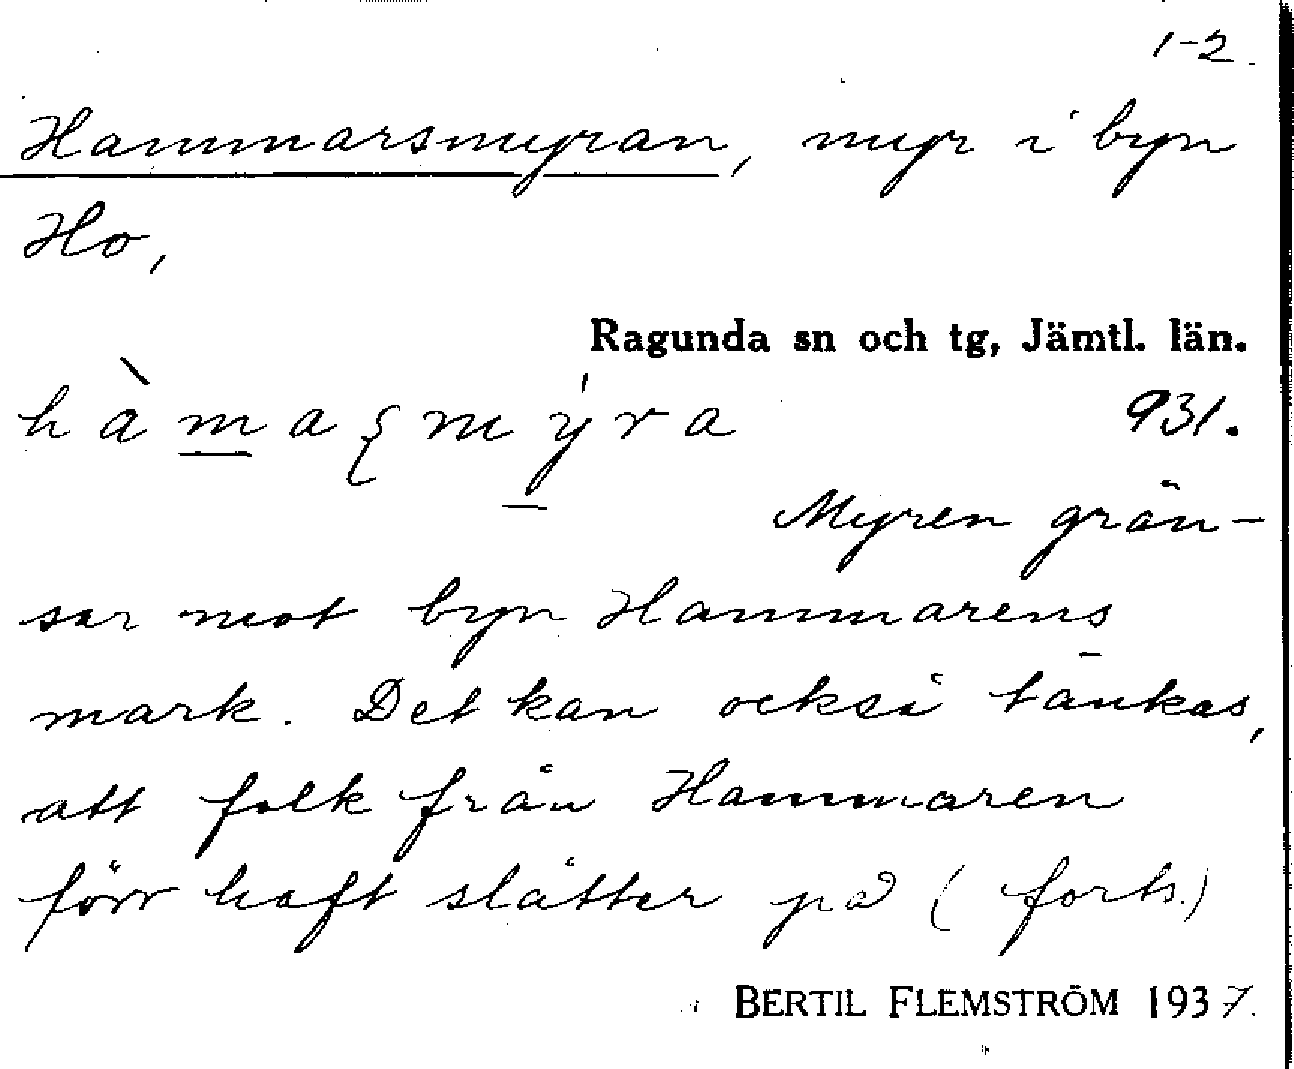 1-2.
Hammarsmyran, myr i byn
Ho,
Ragunda sn och tg, Jämtl. län.
931.
Myren grän-
sar mot byn Hammarens
mark. Det kan också tänkas,
att folk från Hammaren
förr haft slåtter på (forts.)
BERTIL FLEMSTRÖM 1937.